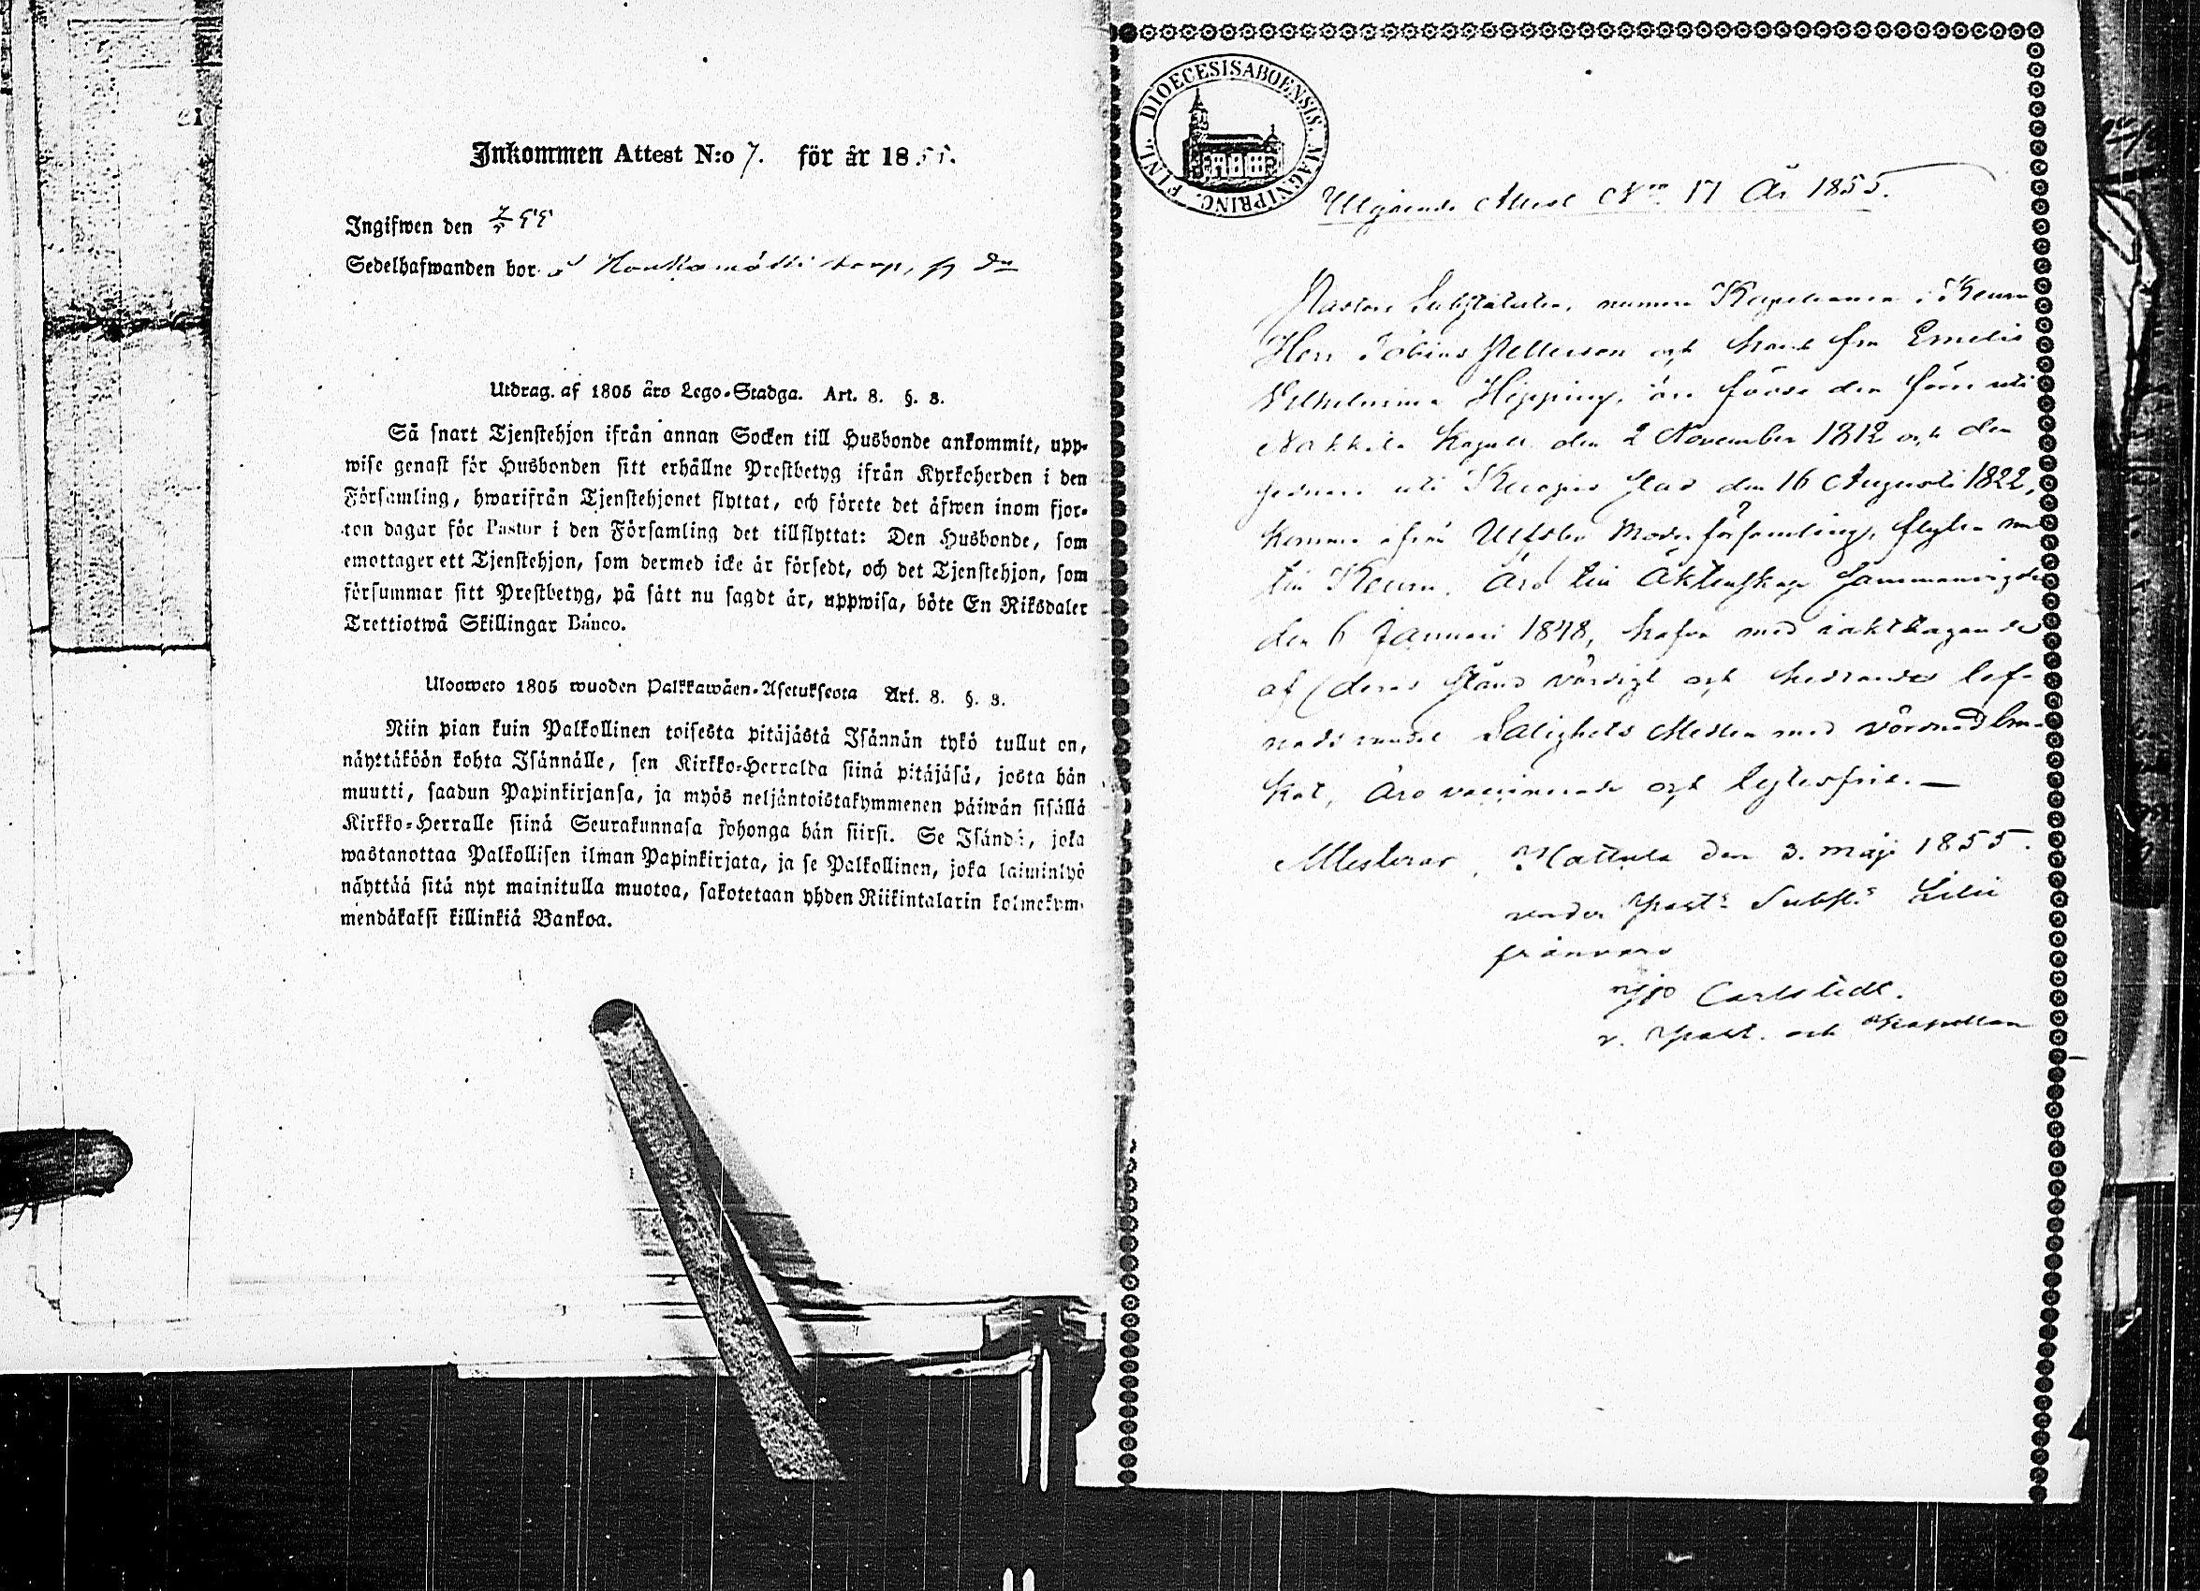 Inkommen Attest N:o 7. för år 1855.
Ingifwen den 7/5 55
Sedelhafwanden bor
Utdrag. af 1805 års Lego-Stadga. Art. 8. §. 3.
Så snart Tjenstehjon ifrån annan Socken till Husbonde ankommit, upp-
wise genast för Husbonden sitt erhållne Prestbetyg ifrån Kyrkoherden i den
Församling, hwarifrån Tjenstehjonet flyttat, och förete det äfwen inom fjor-
ton dagar för Pastor i den Församling det tillflyttat: Den Husbonde, som
emottager ett Tjenstehjon, som dermed icke är försedt, och det Tjenstehjon, som
försummar sitt Prestbetyg, på sätt nu sagdt är, uppwisa, böte En Riksdaler
Trettiotwå Skillingar Banco.
Ulosweto 1805 wuoden Palkkawäen-Asetuksesta Art. 8. §. 3.
Niin pian kuin Palkollinen toisesta pitäjästä Isännän tykö tullut on,
näyttäköön kohta Isännälle, sen Kirkko-Herralda siinä pitäjäsä, josta hän
muutti, saadun Papinkirjansa, ja myös neljäntoistakymmenen päiwän sisällä
Kirkko-Herralle siinä Seurakunnasa johonga hän siirsi. Se Isändä, joka
wastanottaa Palkollisen ilman Papinkirjata, ja se Palkollinen, joka laiminlyö
näyttää sitä nyt mainitulla muotoa, sakotetaan yhden Riikintalarin kolmekym-
mendäkaksi killinkiä Bankoa.
DIOECESIS ABOENSIS. MAGNI PRINC. FINL.
Utgående Attest N:o 17 År 1855.
Pastors Substituten, numera Kapellanen i Keuru
Herr Tobias Pettersson och hans fru Emelie
Vilhelmina Hipping, äro födde den förre uti
Nakkila Kapell den 2 November 1812 och den
sednare uti Kuopio stad den 16 Augusti 1822,
komne ifrån Ulfsby Moderförsamling, flytta nu
till Keuru. Äro till Äktenskap sammanvigde
den 6 Januari 1848, hafva med iakttagande
af deras stånd värdigt och hedrande lef-
nads vandel Salighets Medlen med vördnad bru-
kat, äro vaccinerade och lyckesfrie. —
Attesterar, Hattula den 3. maji 1855.
under Past:s Subst:s Lilii
frånvaro
Carlstedt.
v. Past. och Kapellan